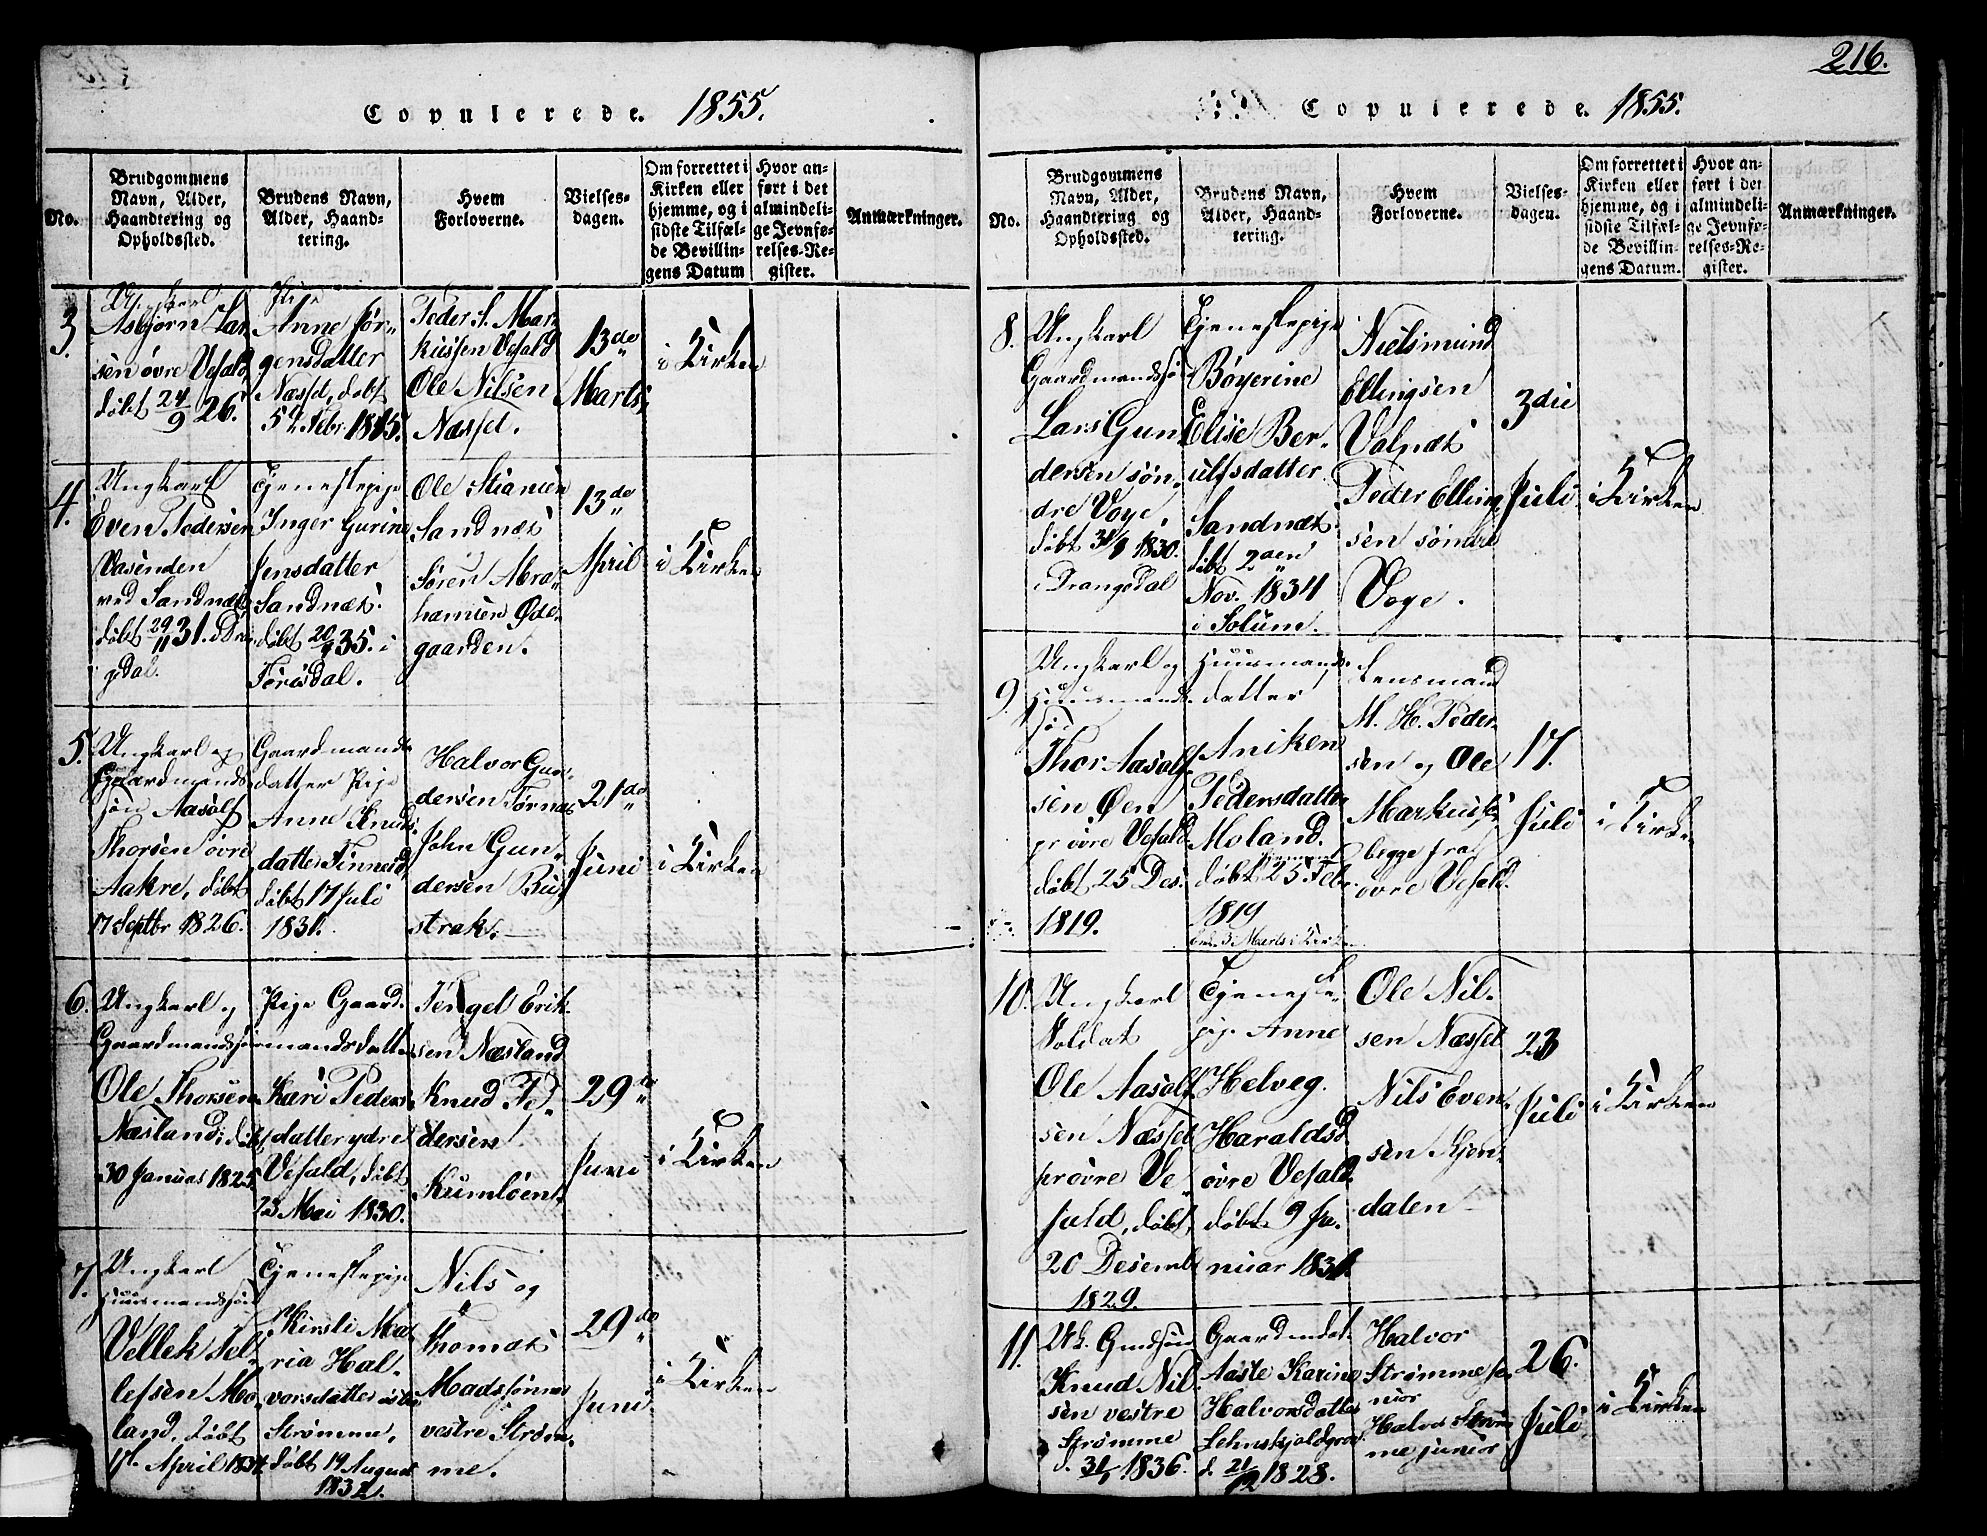 216.
Copulerede. 1855.
No.
Brudgommens
Navn, Alder,
Haandtering og
Opholdssted.
Brudens Navn,
Alder, Haand-
tering.
Hvem
Forloverne.
Vielses-
dagen.
Om forrettet i
Kirken eller
hjemme, og i
sidste Tilfæl-
de Bevillin-
gens Datum
Hvor an-
ført i det
almindeli-
ge Jevnfø-
relses-Re-
gister.
Anmærkninger.
3.
Ungkarl
Asbjørn Lar
sen øvre Vefald
døbt 24/9 26.
Pige
Anne Jør-
gensdatter
Næsset, døbt
5te Febr. 1815.
Peder S. Mar
kussen Vefald
Ole Nilsen
Næsset.
13de
Marts,
i Kirken
4.
Ungkarl
Even Pedersen
Vasenden
ved Sandnæs
døbt 29/11 31. i Dran
gedal.
Tjenestepige
Inger Gurine
Jensdatter
Sandnæs.
døbt 35. i
Tørisdal.
Ole Stiansen
Sandnæs
Søren Abra
hamsen Øde
gaarden.
13de
April
i Kirken
5.
Ungkarl og
Gaardmands
søn Aasolf
Thorsen øvre
Aakre, døbt
17 Septbr 1826.
Gaardmands
datter Pige
Anne Knuds
datter Finneid,
døbt 17 Juli
1831.
Halvor Gun
dersen Tørnæs
John Gun-
dersen Bu
strak.
21de
Juni
i Kirken
6.
Ungkarl og
Gaardmandssøn
Ole Thorsen
Næsland, døbt
30 Januar 1825.
Pige Gaard-
mandsdatter
Kari Peders
datter ydre
Vefald, døbt
23 Mai 1830.
Tengel Erik
sen Næsland
Knud Pe-
dersen
Kumløen.
29de
Juni
i Kirken
7.
Ungkarl
Huusmandssøn
Vellek Sel
lefsen Mo
land, døbt
April 1831.
Tjenestepige
Kirsti Ma
ria Hal-
vorsdatter
Strømme,
døbt 19 August
1832.
Nils og
Thomas
Madssønner
vestre Strøm-
me.
29de
Juni
i Kirken
Copulerede. 1855.
No.
Brudgommens
Navn, Alder,
Haandtering og
Opholdssted.
Brudens Navn,
Alder, Haand-
tering.
Hvem
Forloverne.
Vielses-
dagen.
Om forrettet i
Kirken eller
hjemme, og i
sidste Tilfæl-
de Bevillin-
gens Datum.
Hvor an-
ført i det
almindeli-
ge Jevnfø-
relses-Re-
gister.
Anmærkninger.
8.
Ungkarl
Gaardmandssøn
Lars Gun
dersen søn
dre Voje,
døbt 1830.
i Drangedal
Tjenestepige
Bøyerine
Elise Ber-
ulfsdatter
Sandnæs
døbt 2den
Nov. 1834
i Solum.
Nielsmund
Ellingsen
Valnæs
Peder Elling
sen søndre
Voje.
3die
Juli
i Kirken
9.
Ungkarl og
Huusmands
sø.
Thor Aasolf
sen Øen
pr øvre Vefald
døbt 25 Des.
1819.
Huusmands
datter
Aniken
Pedersdatter
Moland.
døbt 25. Febr.
1819
3 Marts i Kirk
Lensmand
M. H. Peder
sen og Ole
Markuss.
begge fra
øvre Vefald.
17.
Juli
i Kirken
10.
Ungkarl
Soldat
Ole Aasolf
sen Næsset
pr øvre Ve
fald, døbt
20 Desembr
1829.
Tjeneste
pige Anne
Helveg.
Haraldsd
øvre Vefald.
døbt 9 Ja-
nuar 1831.
Ole Nil-
sen Næsset
Nils Even-
sen Kjen
dalen
23
Juli
i Kirken
11.
Uk. Gmdsøn
Knud Nil-
sen vestre
Strømme
d. 1836.
Gaardmdat.
Aaste Karine
Halvorsdatter
d. 21/12 1828.
Halvor
Strømme se
nior
Halvor Strøm
me junior
26.
Juli
i Kirken